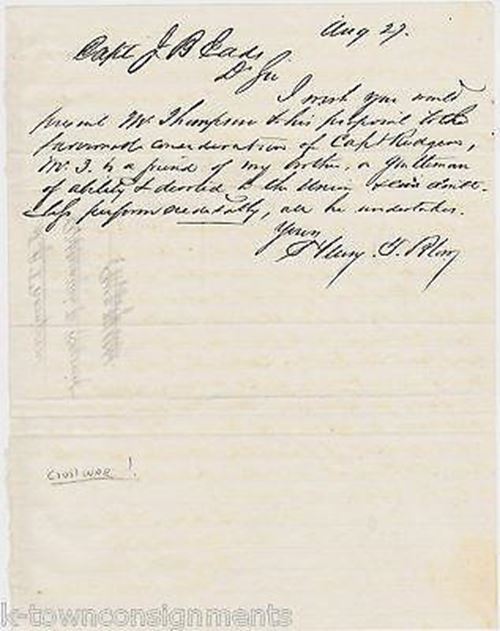 Aug 27.
Capt J. B Eads
Dr Sir
I wish you would
present Mr. Thompson & his proposal to the
favourable consideration of Capt Rodgers,
Mr. T. is a friend of my brother, a gentleman
of ability & devoted to the Union & can doubt-
less perform creditably, all he undertakes.
Yours
Henry T. Blow
Civil War!
k-townconsignments